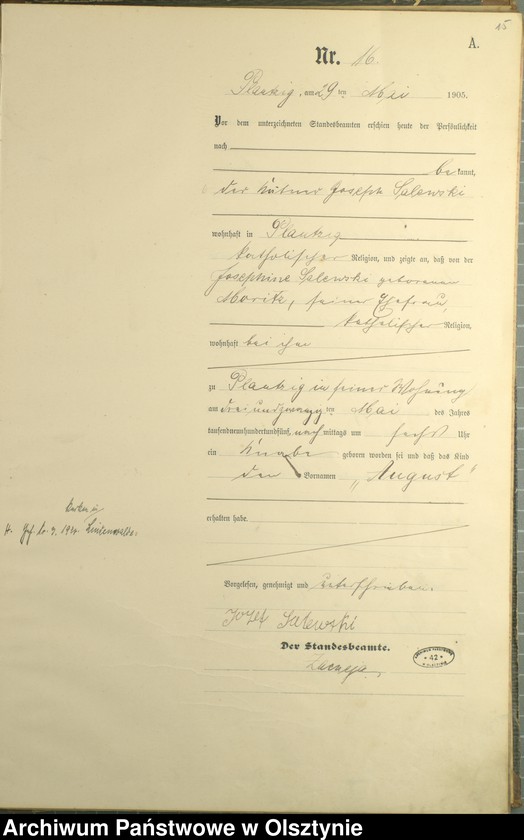 15
A.
Nr. 16
Plautzig, am 29ten Mai 1905.
Vor dem unterzeichneten Standesbeamten erschien heute der Persönlichkeit
nach
bekannt,
der Kätner Joseph Salewski
wohnhaft in Plautzig
katholischer Religion, und zeigte an, daß von der
Josephine Salewski geborenen
Moritz, seiner Ehefrau,
katholischer Religion,
wohnhaft bei ihm
zu Plautzig in seiner Wohnung
am dreiundzwanzigten Mai des Jahres
tausendneunhundertundfünf, nachmittags um sechs Uhr
ein Knabe geboren worden sei und daß das Kind
den Vornamen „August“
erhalten habe.
Vorgelesen, genehmigt und unterschrieben.
Jozef Salewski
Der Standesbeamte.
42
Archiwum Państwowe w Olsztynie